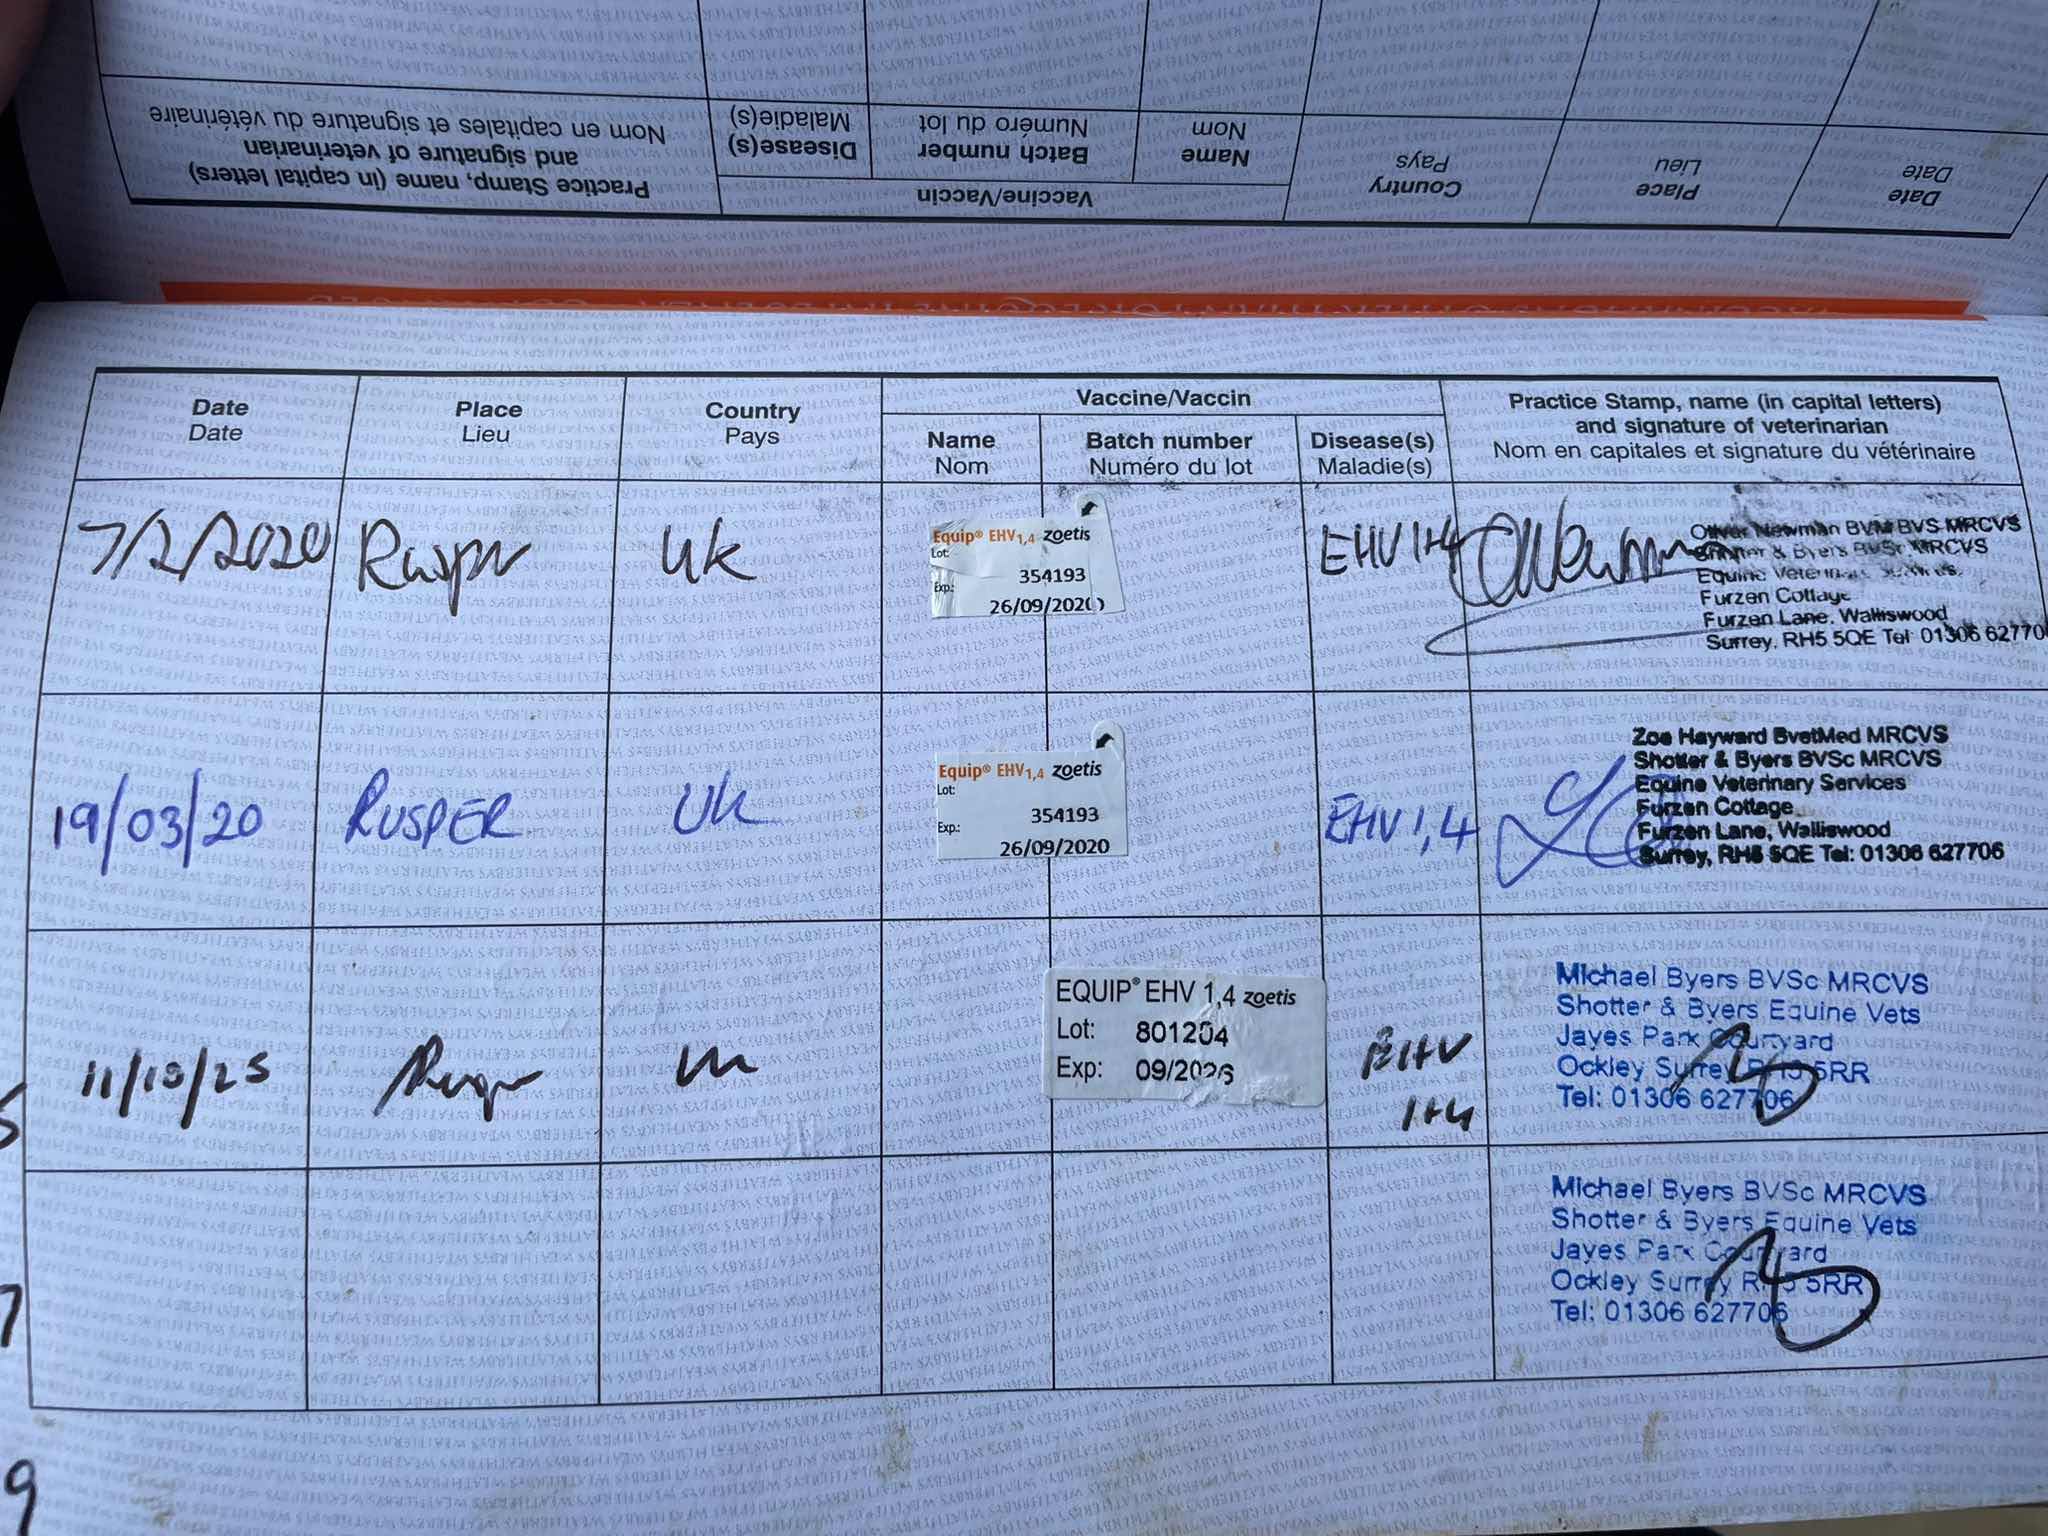 Practice Stamp, name (in capital letters)
and signature of veterinarian
Nom en capitales et signature du vétérinaire
Vaccine/Vaccin
Disease(s)
Maladie(s)
Batch number
Numéro du lot
Name
Nom
Country
Pays
Place
Lieu
Date
Date
Date
Date
Place
Lieu
Country
Pays
Vaccine/Vaccin
Name
Nom
Batch number
Numéro du lot
Disease(s)
Maladie(s)
Practice Stamp, name (in capital letters)
and signature of veterinarian
Nom en capitales et signature du vétérinaire
7/2/2020
Rusper
UK
Equip® EHV1,4 zoetis
Lot:
354193
Exp.:
26/09/2020
EHV 1+4
Oliver Newman BVM BVS MRCVS
Shotter & Byers BVSc MRCVS
Equine Veterinary Services
Furzen Cottage
Furzen Lane, Walliswood
Surrey. RH5 5QE Tel 01306 62770
19/03/20
RUSPER
UK
Equip® EHV1,4 zoetis
Lot:
354193
Exp.:
26/09/2020
EHV 1,4
Zoe Hayward BvetMed MRCVS
Shotter & Byers BVSc MRCVS
Equine Veterinary Services
Furzen Cottage
Furzen Lane, Walliswood
Surrey, RH5 5QE Tel: 01306 627706
11/10/25
Rusper
UK
EQUIP® EHV 1,4 zoetis
Lot: 801204
Exp: 09/2026
EHV
1+4
Michael Byers BVSc MRCVS
Shotter & Byers Equine Vets
Jayes Park Courtyard
Ockley Surrey RH5 5RR
Tel: 01306 627706
Michael Byers BVSc MRCVS
Shotter & Byers Equine Vets
Jayes Park Courtyard
Ockley Surrey RH5 5RR
Tel: 01306 627706
7
9